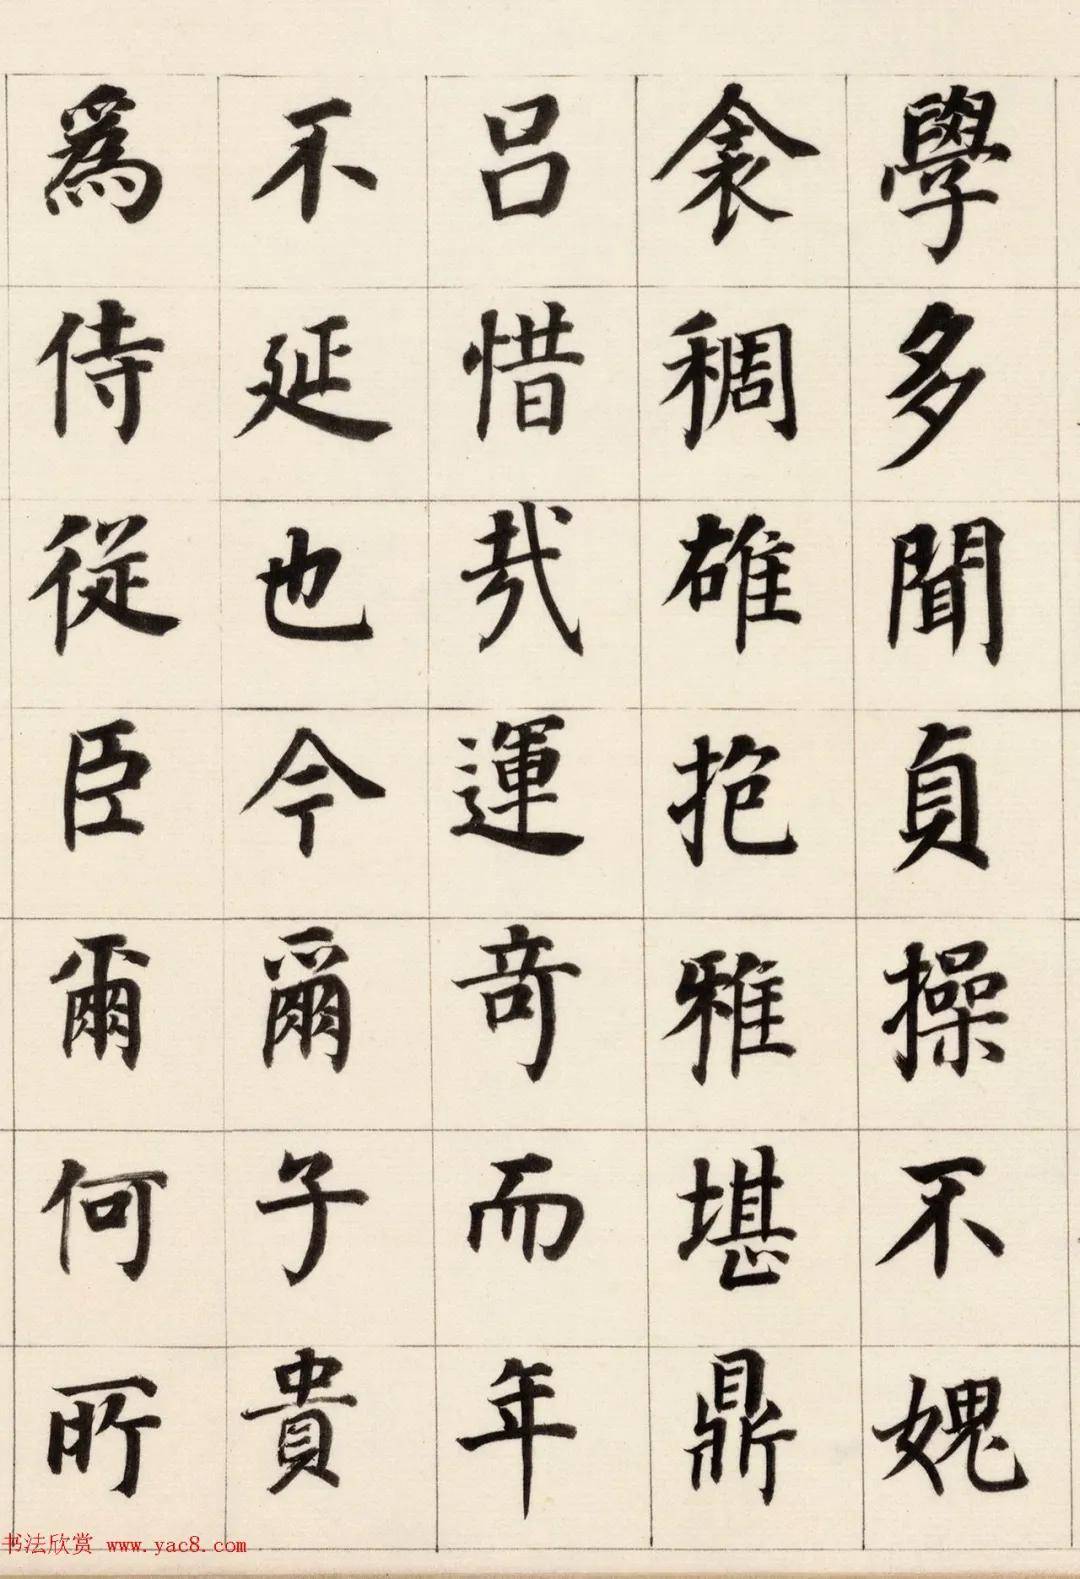 學多聞貞操不媿
衾稠雄抱雅堪鼎
呂惜㢤運奇而年
不延也今爾子貴
爲侍從臣爾何所
书法欣赏 www.yac8.com